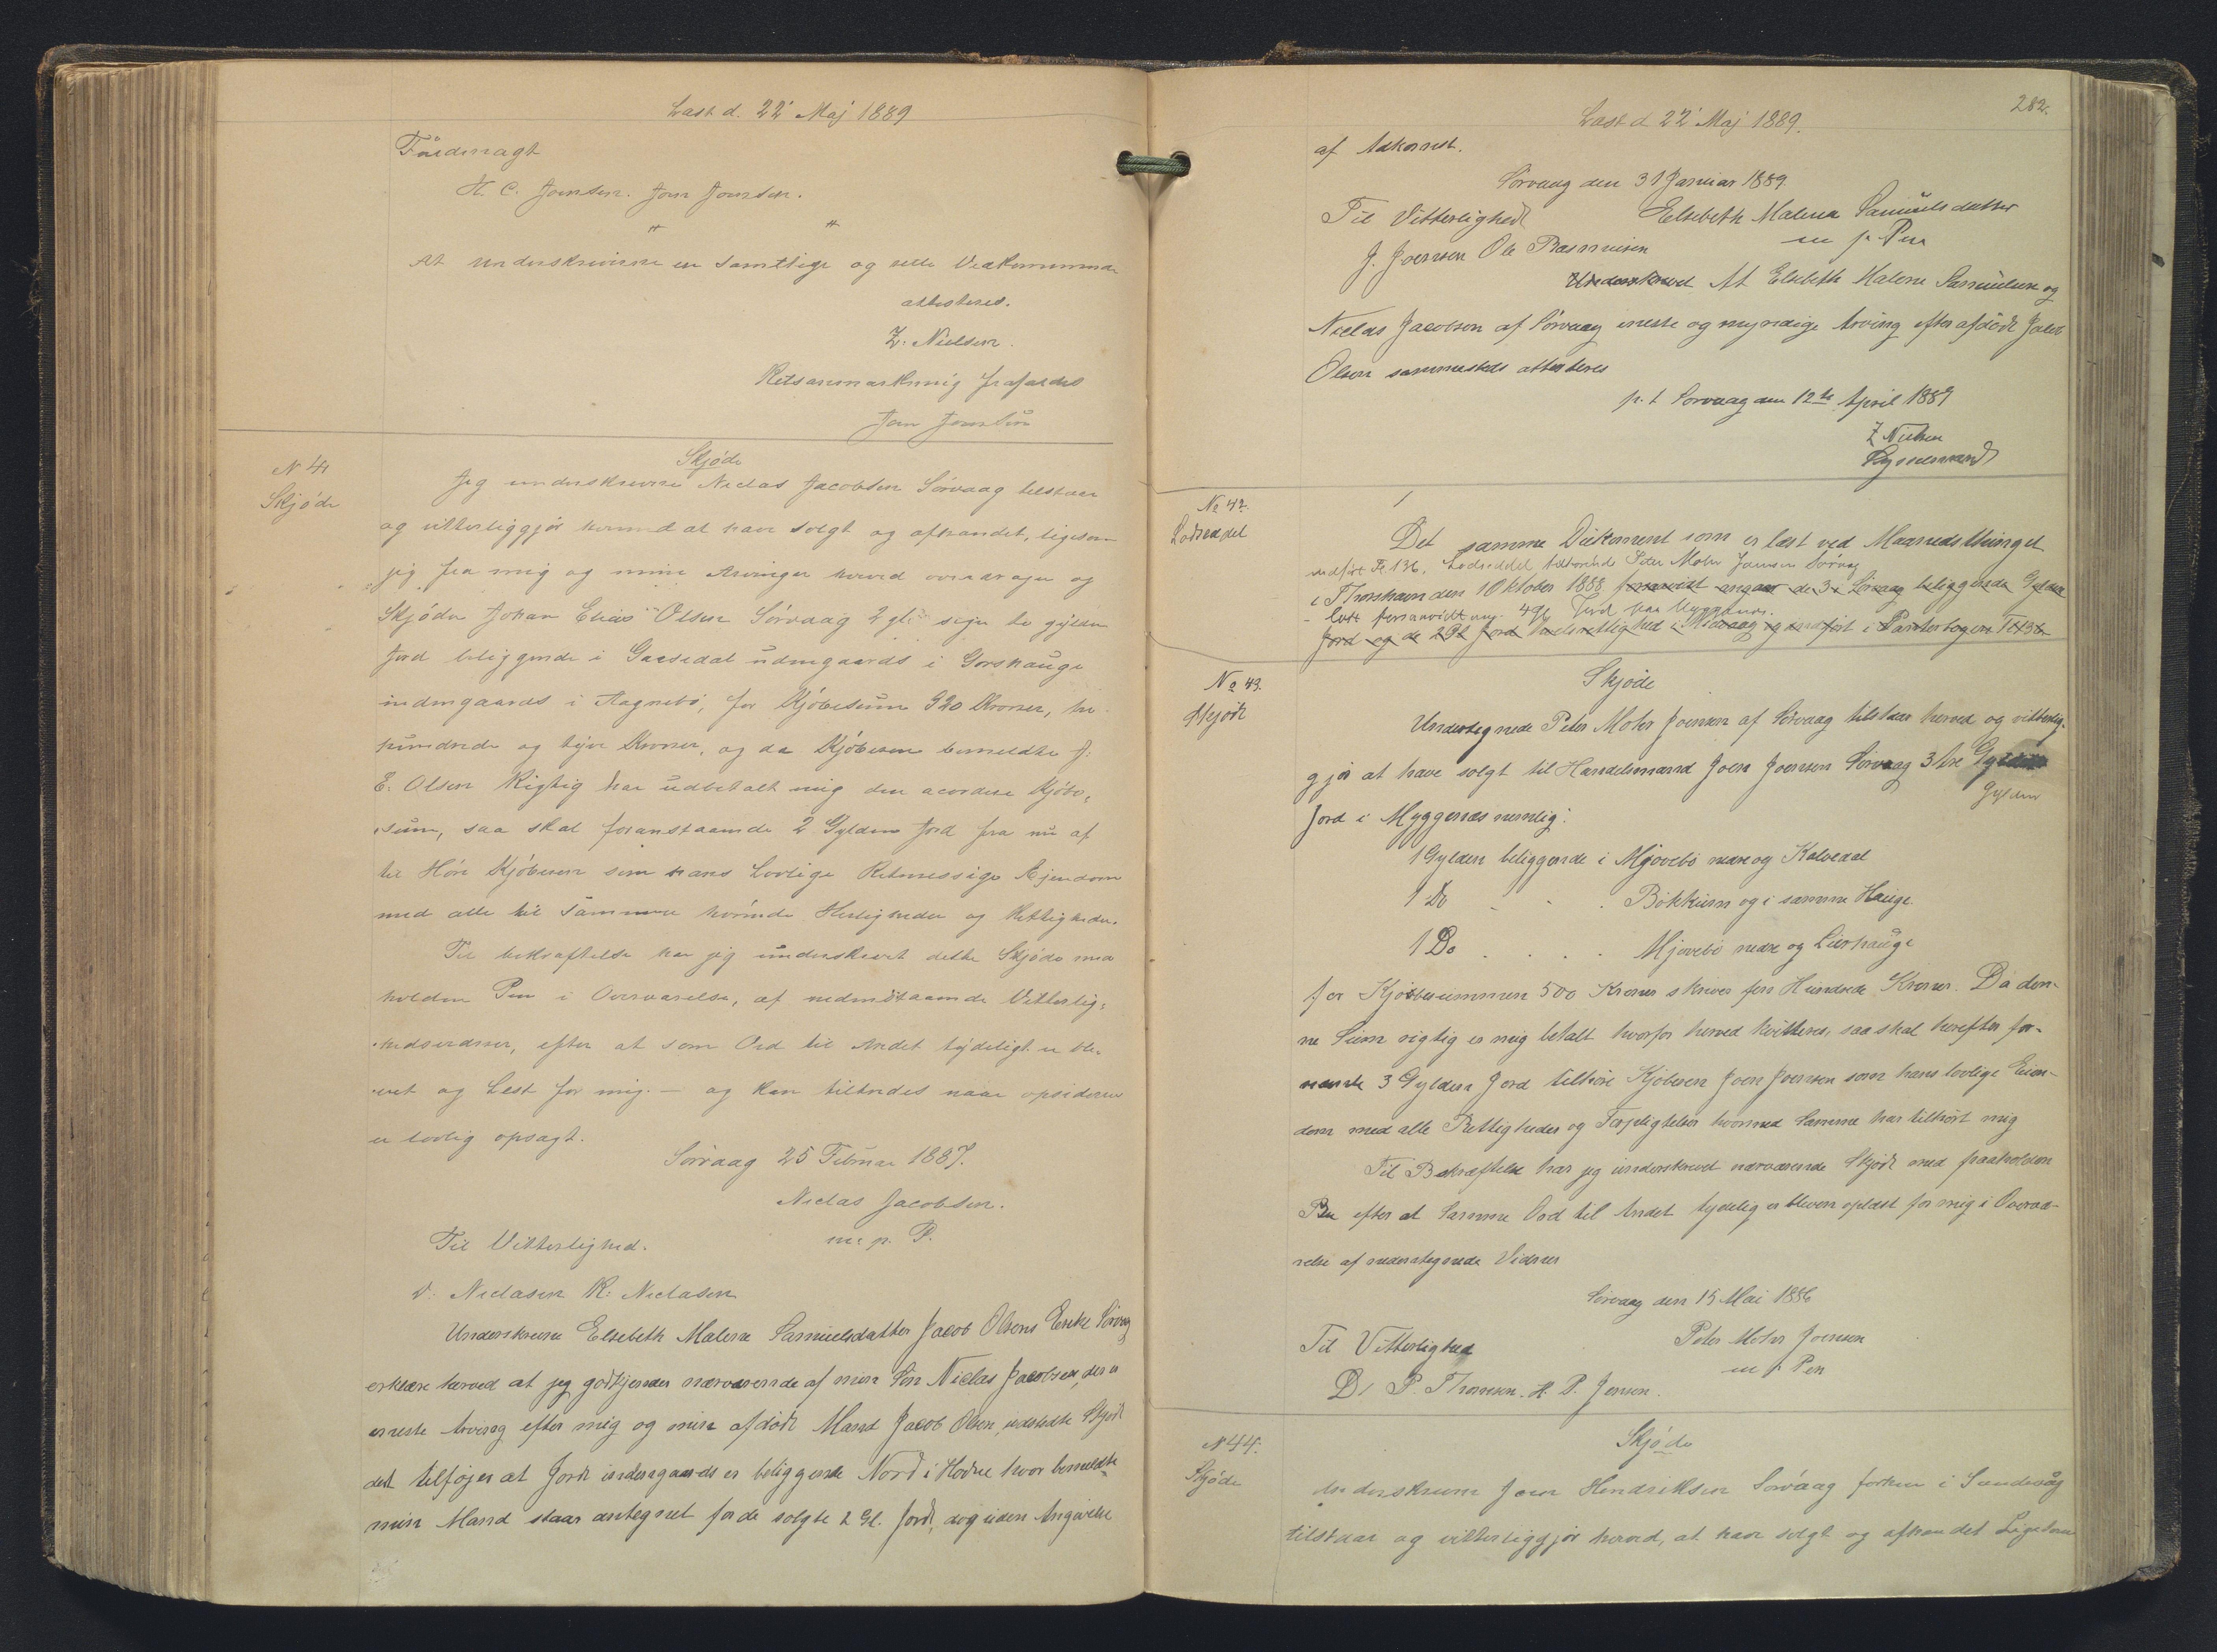 Læst d. 22' Maj 1889
Fuldmagt
H. C. Joensen. Jon Joensen.
" "
At underskriverne er samtlige og rette Vedkommende
attesteres.
Z. Nielsen.
Retsanmærkning frafaldes
Jon Joensen
N 41
Skjøde
Skjøde
Jeg underskrevne Niclas Jacobsen Sörvaag tilstaar
og vitterliggjör hermed at have solgt og afhændet, ligesom
jeg fra mig og mine Arvinger herved overdrager og
Skjöder Johan Elias Olsen Sörvaag 2 gl. siger to gylden
Jord beliggende i Gaasedal udengaards i Gorshauge
indengaards i Aagnebö, for Kjöbesum 920 Kroner, ni
hundrede og tyve Kroner, og da Kjöberen bemeldte J.
E. Olsen Rigtig har udbetalt mig den acordere Kjöbe,
sum, saa skal foranstaaende 2 Gylden Jord fra nu af
til Höre Kjöberen som hans Lovlige Retmessige Ejendom
med alle til Sammme hörende Herligheder og Rettigheder.
Til bekræftelse har jeg underskrevet dette Skjöde med
holden Pen i Overværelse, af nedenstaaende Vitterlig,
hedsvidner, efter at som Ord til Andet tydeligt er ble,
vet og Lest for mig. — og kan tiltredes naar opsideren
er lovlig opsagt.
Sörvaag 25 Februar 1887.
Niclas Jacobsen.
m. p. P.
Til Vitterlighed.
D. Niclasen R. Niclasen
Underskrevne Elsebeth Malene Samuelsdatter Jacob Olsens Enke Sörvaag
erklære herved at jeg godkjender nærværende af min Sön Niclas Jacobsen, der er
eneste Arving efter mig og min afdöde Mand Jacob Olsen, udstedte Skjöde
det tilföjes at Jord indengaards er beliggende Nord i Hödne hvor bemeldte
min Mand staar antegnet for de solgte 2 Gl. Jord, dog uden Angivelse
Læst d 22' Maj 1889.
282.
af Adkomst.
Sörvaag den 31 Januar 1889.
Til Vitterlighed Elsebeth Malena Samuelsdatter
m p. Pen
J. Joensen Ole Rasmusen
Underskrevet At Elsebeth Malene Samuelsen og
Niclas Jacobsen af Sörvaag eneste og myndige Arving efter afdöde Jacob
Olsen sammesteds attesteres
p. t Sorvaag den 12te April 1889
Z Nielsen
Sysselmand
No 42.
Lodseddel
Det samme Dokument som er læst ved Maanedsthinget
indfört Fo 136, Lodseddel tilhörende Peter Mohr Joensen Sörvag
i Thorshavn den 10 Ktober 1888 forsaavidt angaar de 3 i Sörvaag beliggende Gylden
- læst forsaavidt ang. 4 Gl Jord paa Myggenæs.
Jord og de 2 Gl Jord i Midvaag og indfört i Panterbogen Fo 136
No 43.
Skjöde
Skjöde
Undertegnede Peter Mohr Joensen af Sörvaag tilstaar herved og vitterlig-
gjör at have solgt til Handelsmand Joen Joensen Sörvaag 3 tre Gylden
Gylden
Jord i Myggenæs nemlig:
1 Gylden beliggende i Mjovebö nedre og Kalvedal
1 Do . . . Bökkum og i samme Hauge.
1 Do . . . Mjovebö nedre og Lierhauge
for Kjöbbesummen 500 Kroner skriver fem Hundrede Kroner. Da den-
ne Sum rigtig er mig betalt hvorfor herved kvitteres, saa skal herefter for-
nævnte 3 Gylden Jord tilhöre Kjöberen Joen Joensen som hans lovlige Eien-
dom med alle Rettigheder og Forpligtelser hvormed Samme har tilhört mig
Til Bekræftelse har jeg underskrevet nærværende Skjöde med paaholden
Pen efter at Samme Ord til Andet tydelig er bleven oplæst for mig i Overvæ-
relse af undertegnede Vidner
Sörvaag den 15 Mai 1886
Til Vitterlighed Peter Mohr Joensen
m p Pen
D. P. Thomsen. H. P. Jensen.
N 44.
Skjöde
Skjöde
Underskrevne Joen Hendriksen Sorvaag forhen i Sandevåg
tilstaar og vitterliggjör herved, at have solgt og afhændet Ligesom